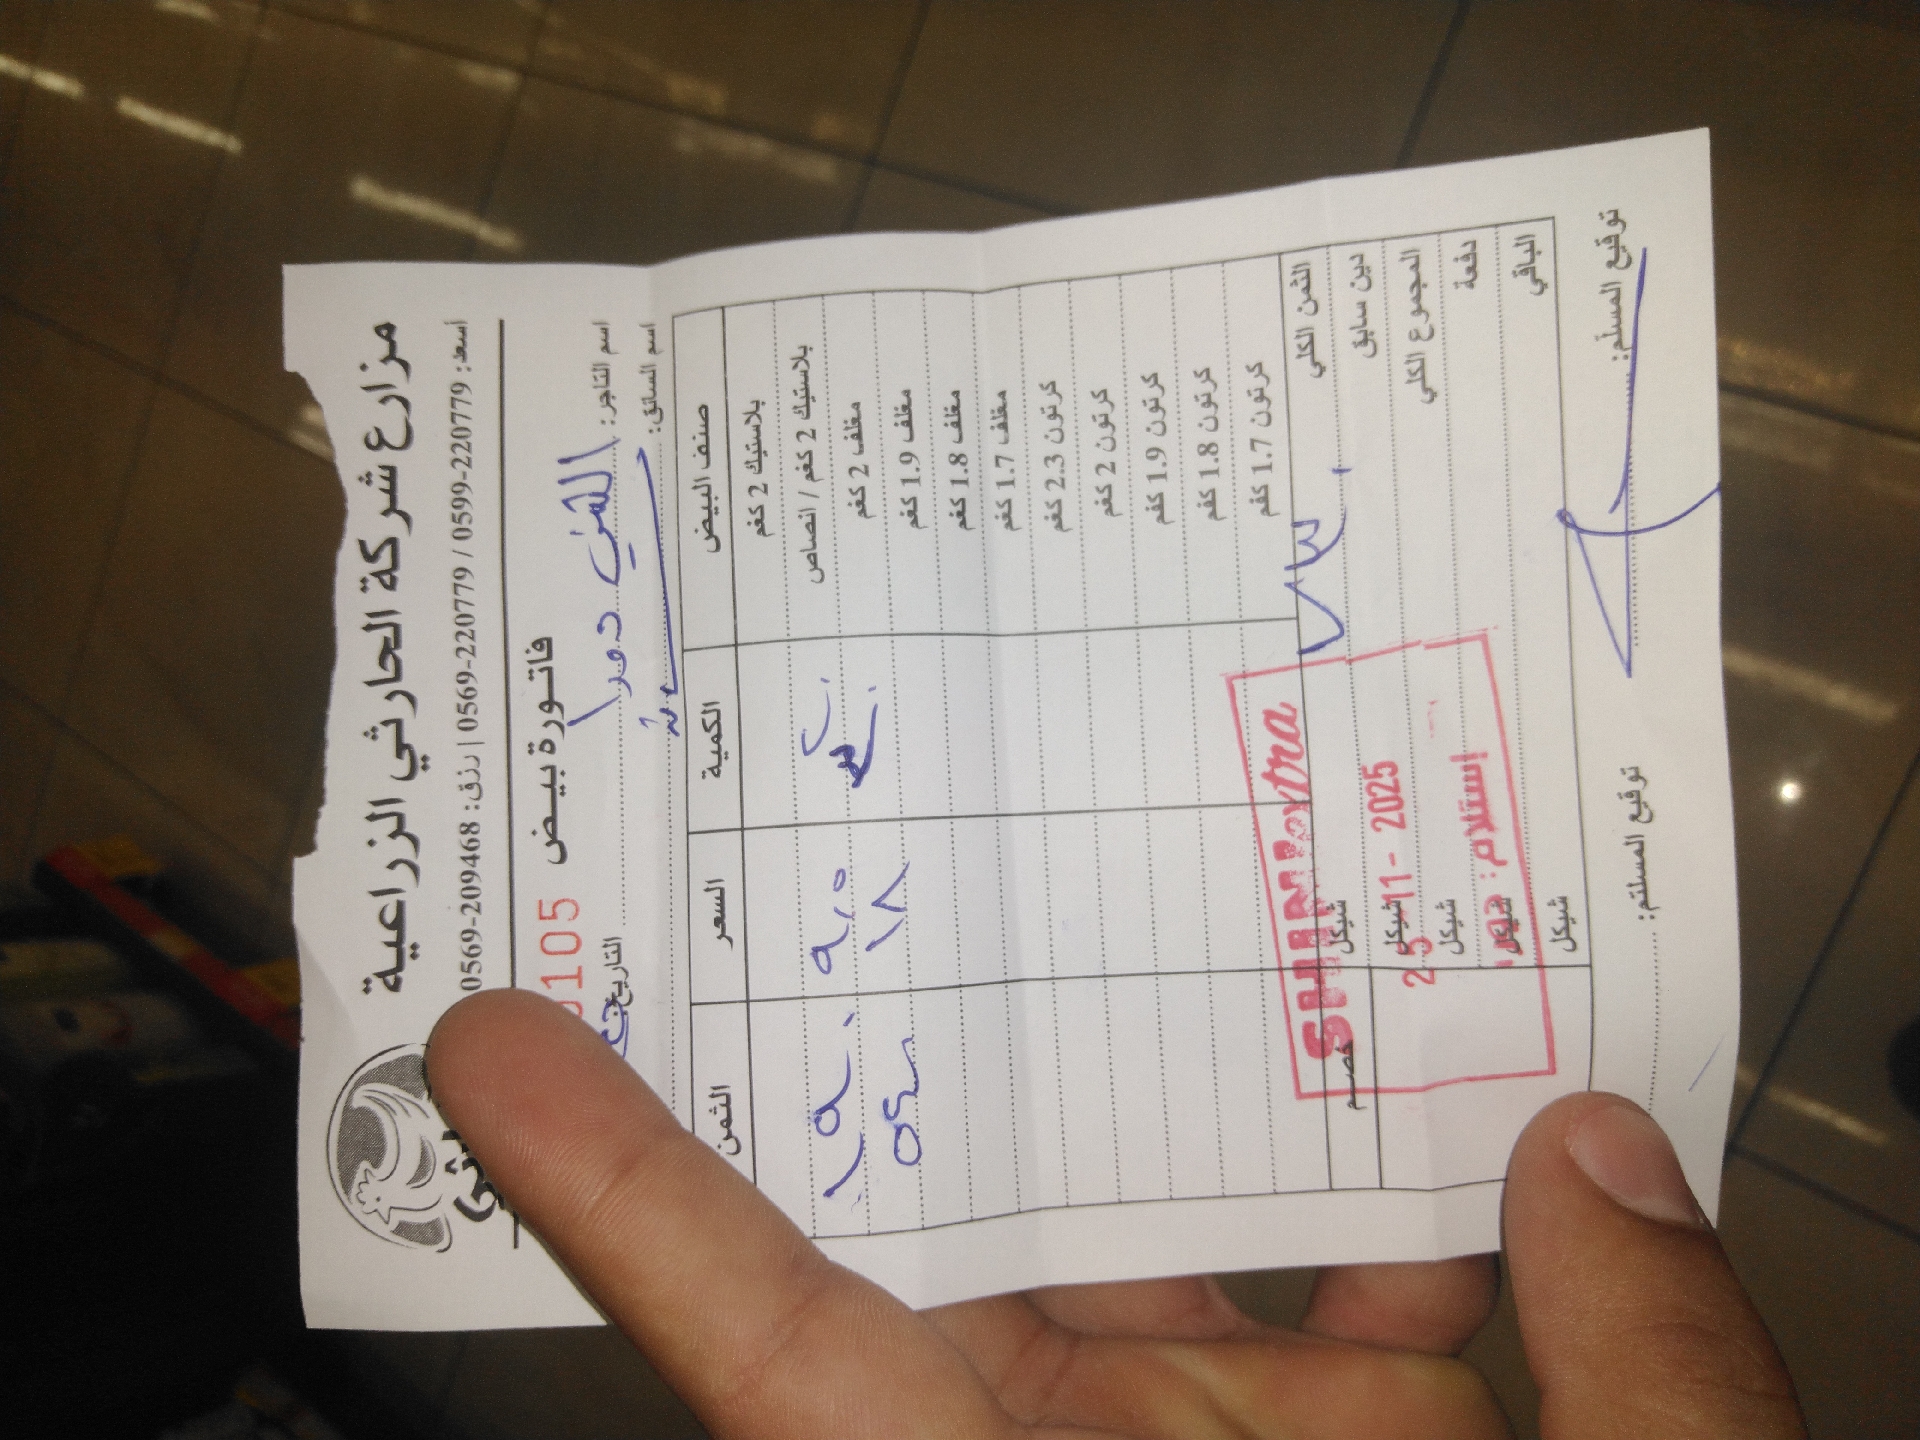 مزارع شركة الحارثي الزراعية
اسعد: 0599-220779 / 0569-220779 | رزق: 0569-209468
فاتورة بيض
0105
اسم التاجر: الشني دورا
التاريخ
اسم السائق:
صنف البيض الكمية السعر الثمن
بلاستيك 2 كغم
بلاستيك 2 كغم / انصاص ٢٠ ٩,٥ ١٩٠
مغلف 2 كغم ٣٠ ١٨ ٥٤٠
مغلف 1.9 كغم
مغلف 1.8 كغم
مغلف 1.7 كغم
كرتون 2.3 كغم
كرتون 2 كغم
كرتون 1.9 كفم
كرتون 1.8 كفم
كرتون 1.7 كفم
الثمن الكلي ٧٣٠ شيكل خصم
دين سابق شيكل
المجموع الكلي شيكل
دفعة شيكل
الباقي شيكل
SHINI extra
25 -11- 2025
إستلام: دورا
توقيع المسلّم:
توقيع المستلم: